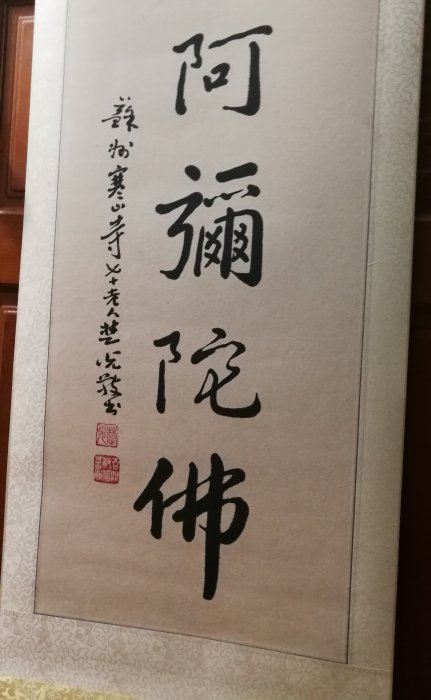 阿彌陀佛
蘇州寒山寺七十老人楚光敬書